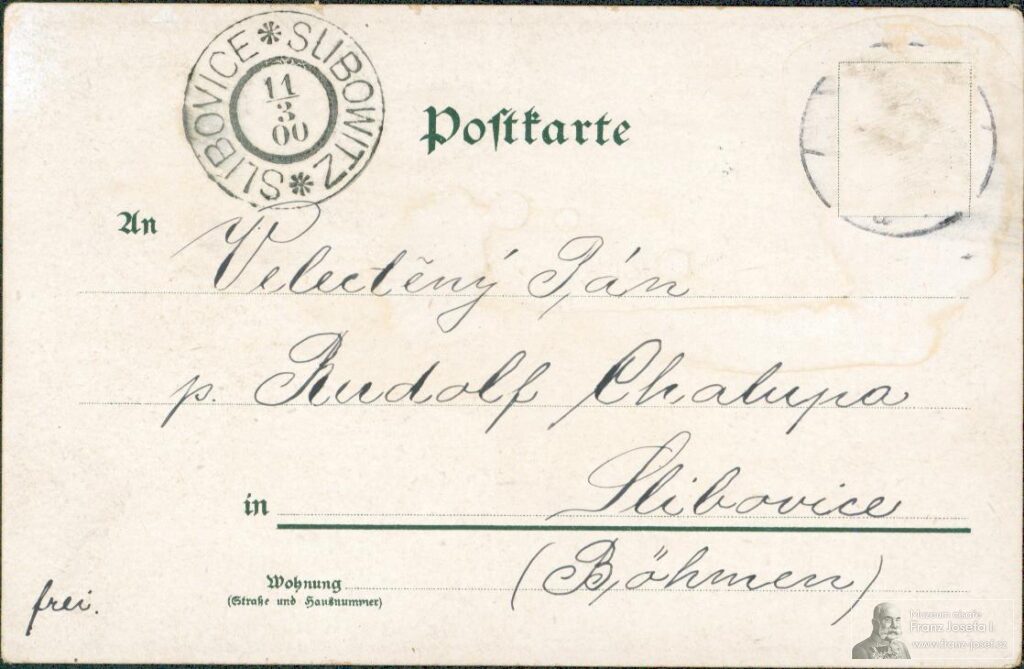 SLIBOVICE * SLIBOWITZ *
11
3
00
Postkarte
An
Velectěný Pán
p. Rudolf Chalupa
in Slibovice
Wohnung (Böhmen)
(Straße und Hausnummer)
frei.
Muzeum císaře
Franz Josefa I.
www.franz-josef.cz